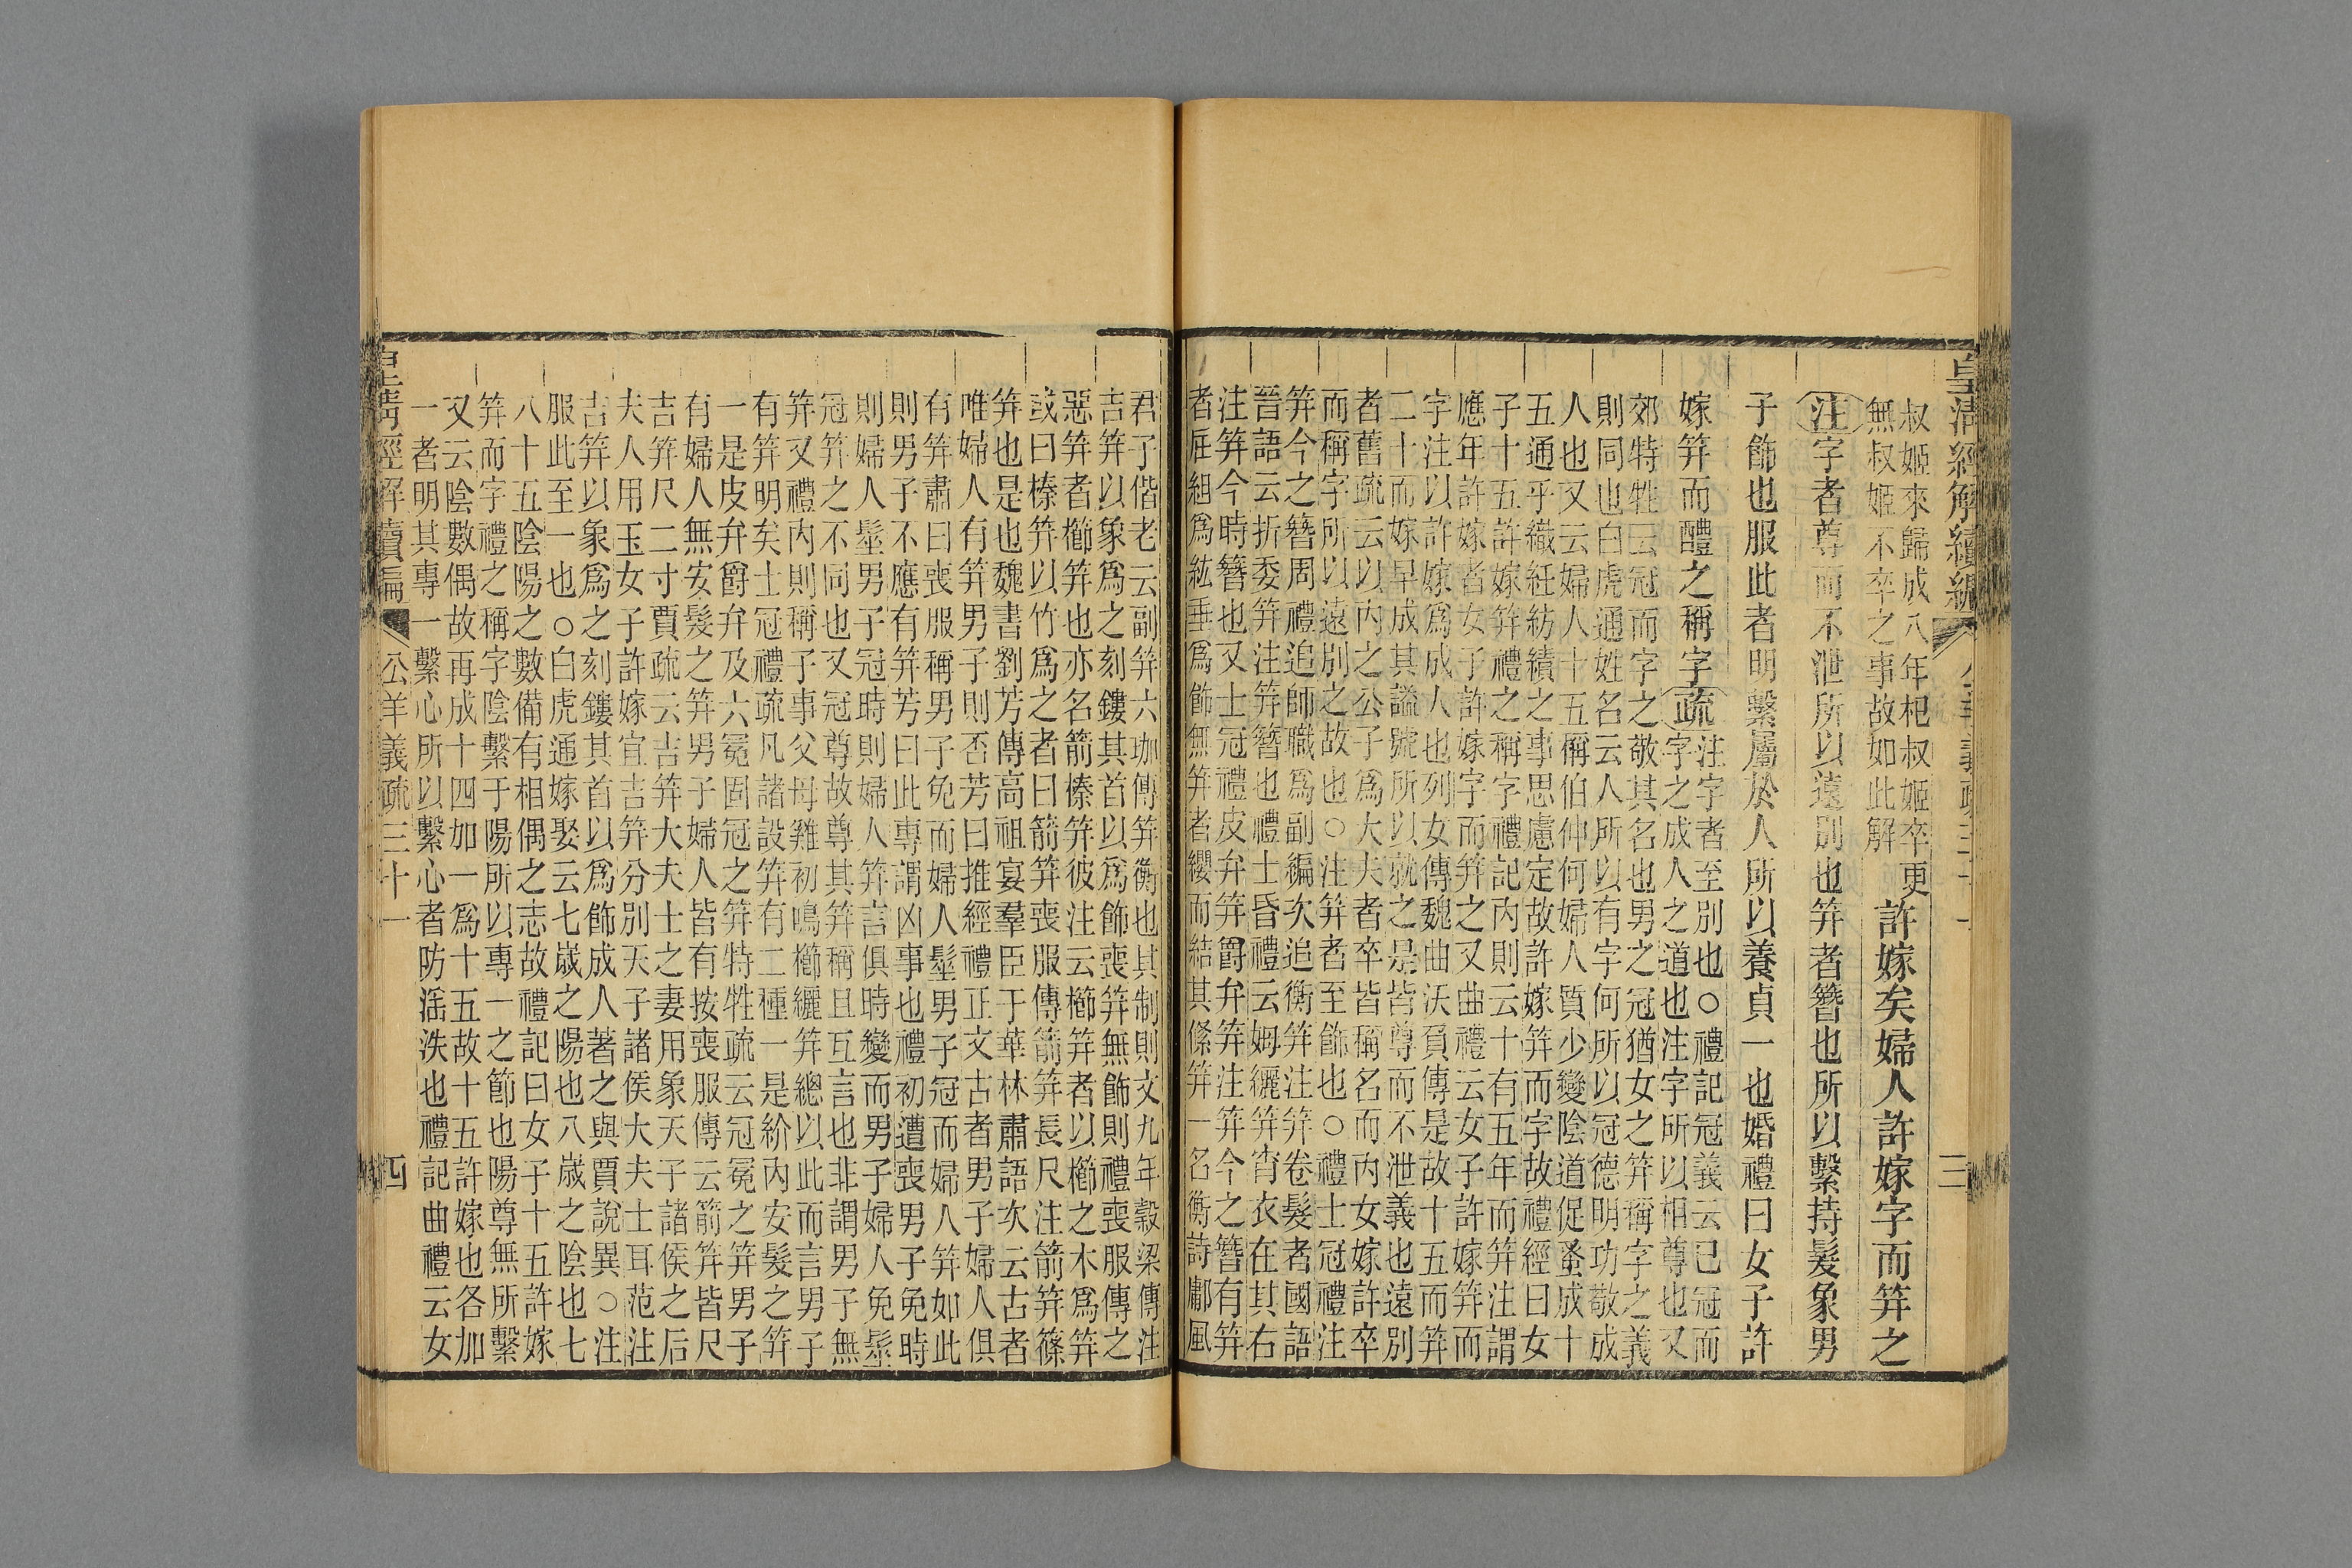 皇清經解續編
公羊義疏三十一
三
叔姬來歸成八年杞叔姬卒更
無叔姬不卒之事故如此解
許嫁矣婦人許嫁字而笄之
注字者尊而不泄所以遠別也笄者簪也所以繫持髮象男
子飾也服此者明繫屬於人所以養貞一也婚禮曰女子許
嫁笄而醴之稱字疏
注字者至別也○禮記冠義云已冠而
字之成人之道也注字所以相尊也又
郊特牲云冠而字之敬其名也男之冠猶女之笄稱字之義
則同也白虎通姓名云人所以有字何所以冠德明功敬成
人也又云婦人十五稱伯仲何婦人質少變陰道促蚤成十
五通乎織紝紡績之事思慮定故許嫁笄而字故禮經曰女
子十五許嫁笄禮之稱字禮記內則云十有五年而笄注謂
應年許嫁者女子許嫁字而笄之又曲禮云女子許嫁笄而
字注以許嫁爲成人也列女傳魏曲沃負傳是故十五而笄
二十而嫁早成其謚號所以就之是皆尊而不泄義也遠別
者舊疏云以內之公子爲大夫者卒皆稱名而內女嫁許卒
而稱字所以遠別之故也○注笄者至飾也○禮士冠禮注
笄今之簪周禮追師職爲副編次追衡笄注笄卷髮者國語
晉語云折委笄注笄簪也禮士昏禮云姆纚笄宵衣在其右
注笄今時簪也又士冠禮皮弁笄爵弁笄注笄今之簪有笄
者屈組爲紘垂爲飾無笄者纓而結其絛笄一名衡詩鄘風
君子偕老云副笄六珈傳笄衡也其制則文九年穀梁傳注
吉笄以象爲之刻鏤其首以爲飾喪笄無飾則禮喪服傳之
惡笄者櫛笄也亦名箭榛笄彼注云櫛笄者以櫛之木爲笄
或曰榛笄以竹爲之者曰箭笄喪服傳箭笄長尺注箭笄篠
笄也是也魏書劉芳傳高祖宴羣臣于華林肅語次云古者
唯婦人有笄男子則否芳曰推經禮正文古者男子婦人俱
有笄肅曰喪服稱男子免而婦人髽男子冠而婦人笄如此
則男子不應有笄芳曰此專謂凶事也禮初遭喪男子免時
則婦人髽男子冠時則婦人笄言俱時變而男子婦人免髽
冠笄之不同也又冠尊故尊其笄稱且互言也非謂男子無
笄又禮內則稱子事父母雞初鳴櫛纚笄總以此而言男子
有笄明矣士冠禮疏凡諸設笄有二種一是紒內安髮之笄
一是皮弁爵弁及六冕固冠之笄特牲疏云冠冕之笄男子
有婦人無安髮之笄男子婦人皆有按喪服傳云箭笄皆尺
吉笄尺二寸賈疏云吉笄大夫士之妻用象天子諸侯之后
夫人用玉女子許嫁宜吉笄分別天子諸侯大夫士耳范注
吉笄以象爲之刻鏤其首以爲飾成人著之與賈說異○注
服此至一也○白虎通嫁娶云七歲之陽也八歲之陰也七
八十五陰陽之數備有相偶之志故禮記曰女子十五許嫁
笄而字禮之稱字陰繫于陽所以專一之節也陽尊無所繫
又云陰數偶故再成十四加一爲十五故十五許嫁也各加
一者明其專一繫心所以繫心者防淫泆也禮記曲禮云女
皇清經解續編
公羊義疏三十一
四